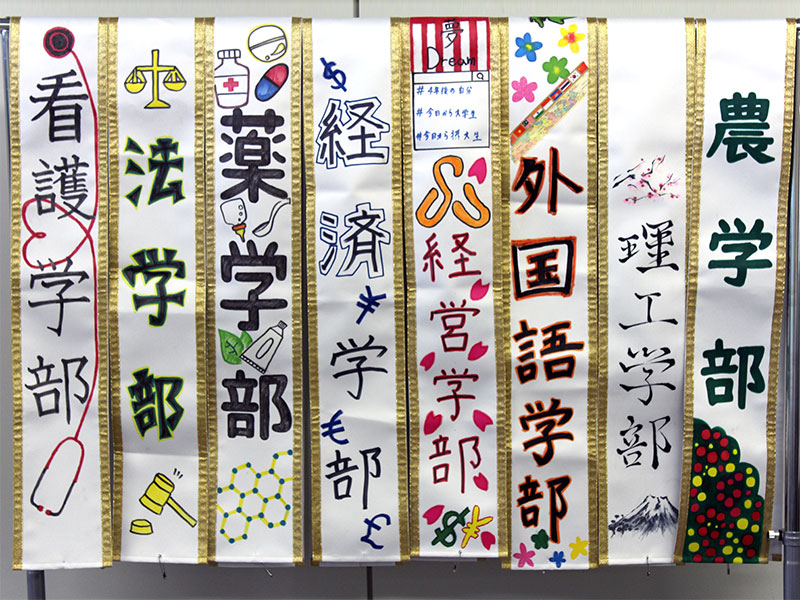 看護学部
法学部
薬学部
$経済¥学€部£
夢
Dream
#4年後の自分
#今日から大学生
#今日から摂大生
経営学部
$¥
外国語学部
理工学部
農学部